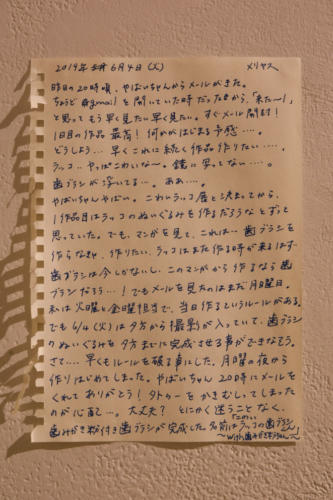 2019年 6月4日(火) メリヤス
昨日の20時頃、やばいちゃんからメールがきた。
ちょうど @gmail を開いていた時だったから、「来た〜!」
と思ってもう早く見たい早く見たい。すぐメール開封!
1日目の作品 最高! 何かがはじまる予感‥‥。
どうしよう‥‥早くこれに続く作品作りたい‥‥。
ラッコ‥やっぱこわいな〜。鏡に写ってない‥‥。
歯ブラシが浮いてる‥‥。ああ‥‥。
やばいちゃんやばい。こわいラッコ展と決まってから、
1作品目はラッコのぬいぐるみを作るだろうなとずっと
思っていた。でも、マンガを見て、これは‥歯ブラシを
作らなきゃ、作りたい、ラッコはまた作る時が来るはず
歯ブラシは今しかないし、このマンガから作るなら歯
ブラシだろう‥‥!でもメールを見たのはまだ月曜日。
私は火曜と金曜担当で、当日作るというルールがある。
でも6/4(火)は夕方から撮影が入っていて、歯ブラシ
のぬいぐるみを夕方までに完成させる事ができなそう。
さて‥‥早くもルールを破る事にした。月曜の夜から
作りはじめてしまった。やばいちゃん20時にメールを
くれてありがとう!タトゥーをかきむしってしまった
のが心配‥‥。大丈夫? とにかく迷うことなく、
歯みがき粉付き歯ブラシが完成した。名前は「ラッコの歯ブラシ